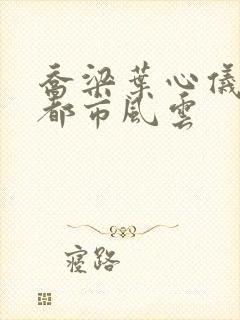 喬梁葉心儀
都市風雲
寢路